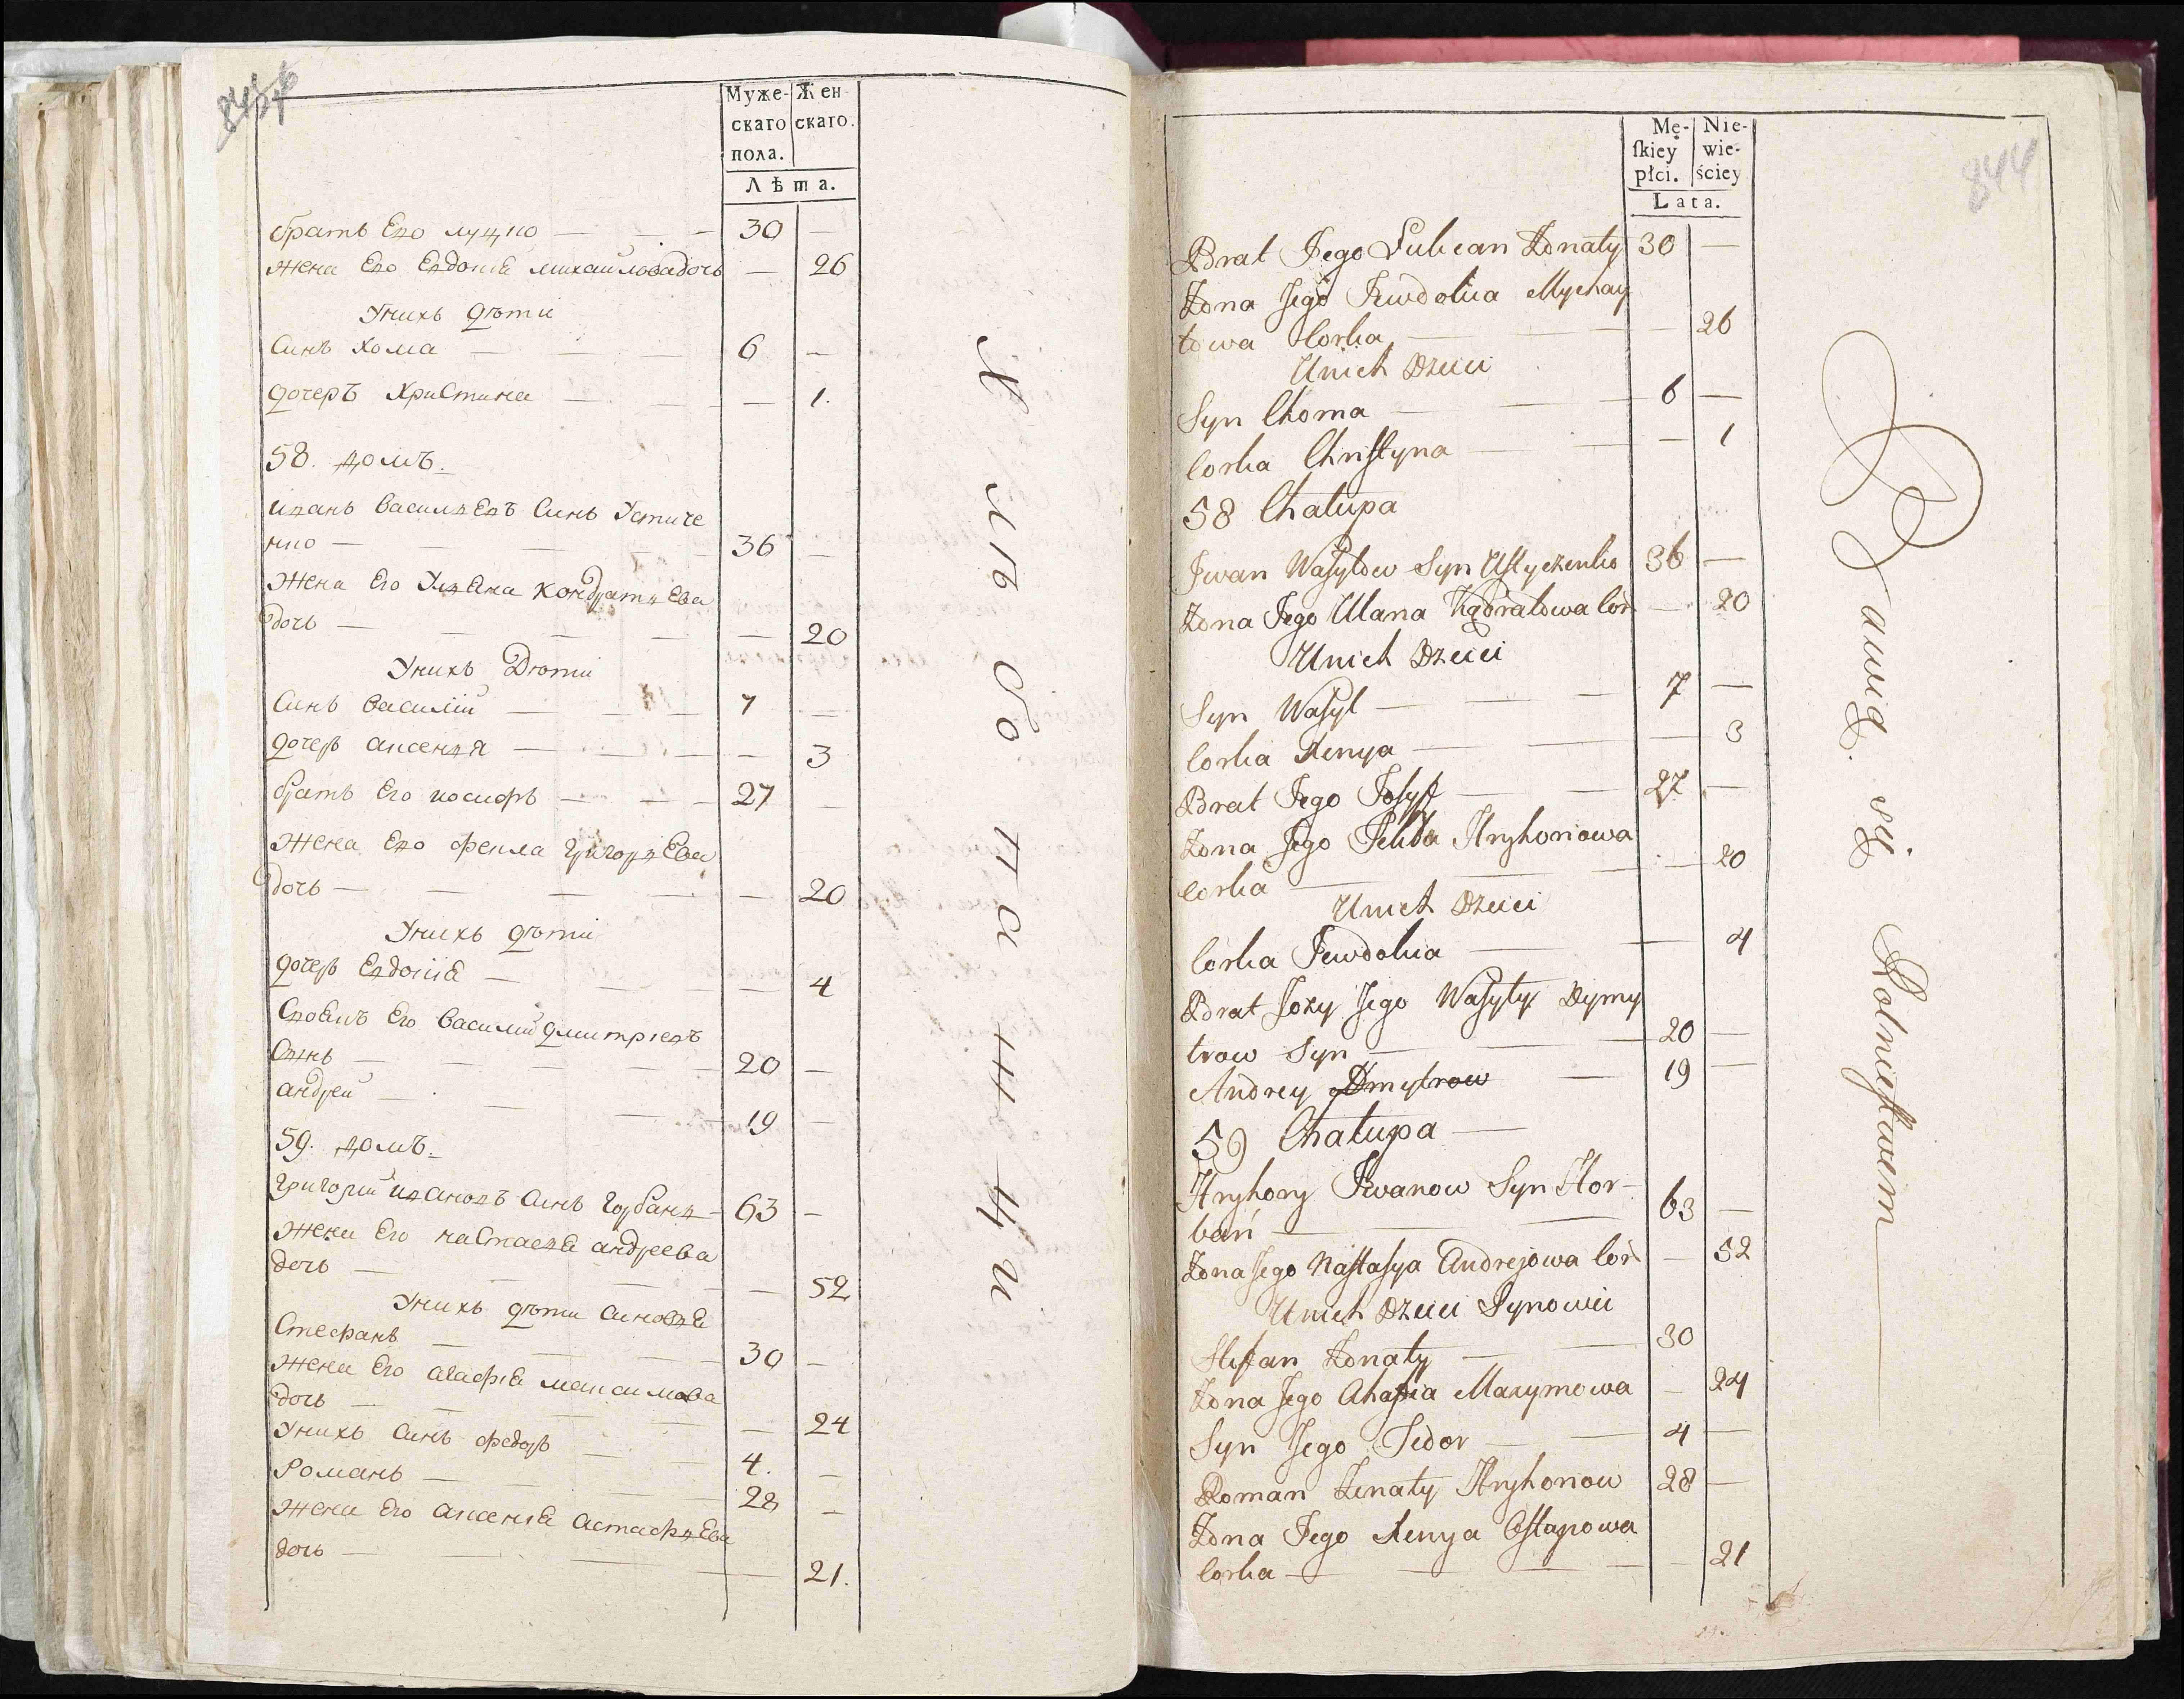 844
Муже- Жен
скаго скаго.
пола.
Лѣта.
братъ Его луцко — — — 30 —
жена Его Евдокіѣ михайлова дочь — 26
Унихъ дѣти
Синъ Хома — — 6 —
дочеръ Христина — — — 1.
58. домъ.
иванъ васильевъ Синъ Устиче
нко — — — — 36 —
Жена Его Ульяна Кондратьева
дочь — — — — — 20
Унихъ Дѣти
Синъ василий — — — 7 —
дочеръ аксенья — — — — 3
братъ Его иосифъ — — — 27 —
Жена Его фекла григорьева
дочь — — — — — 20
Унихъ дѣти
дочеръ Евдокіѣ — — — — 4
Своякъ Его василий дмитріевъ
Синъ — — — — 20 —
андрей — — — 19 —
59. домъ.
григорий ивановъ Синъ горбань — 63 —
Жена Его настасья андреева
дочь — — — — 52
Унихъ дѣти Синовья
Стефанъ — — — 30 —
Жена Его агафіѣ максимова
дочь — — — — 24
Унихъ Синъ федоръ — — 4. —
Романъ — — — 28 —
Жена Его аксеніѣ астафьева
дочь — — — — 21.
Хлѣбопашци
844
Mę- Nie-
ſkiey wie-
płci. ściey
Lata.
Brat Jego Łukian Żonaty 30 —
Żona Jego Jewdokia Mychay
łowa Corka — — — 26
Unich Dzieci
Syn Choma — — 6 —
Corka Chriſtyna — — — 1
58 Chałupa
Jwan Waſylow Syn Uſtyczenko 36 —
Żona Jego Ulana Kądratowa Cor — 20
Unich Dzieci
Syn Waſyl — — 7 —
Corka Xenya — — — 3
Brat Jego Joſyf — — 27 —
Żona Jego Fekła Hryhoriowa
Corka — — — — 20
Unich Dzieci
Corka Jewdokia — — 4
Brat Żony Jego Waſyly Dymy
trow Syn — — — 20 —
Andrey Dmytrow — 19 —
59 Chałupa —
Hryhory Jwanow Syn Hor-
bań — — — 63 —
Żona Jego Naſtaſya Andrejowa Cor — 52
Unich Dzieci Synowie
Stefan Żonaty — — 30
Żona Jego Ahafia Maxymowa — 24
Syn Jego Fedor — — 4 —
Roman Żonaty Hryhoriow 28 —
Żona Jego Xenya Oſtapowa
Corka — — — — 21
Bawią się Rolnictwem —